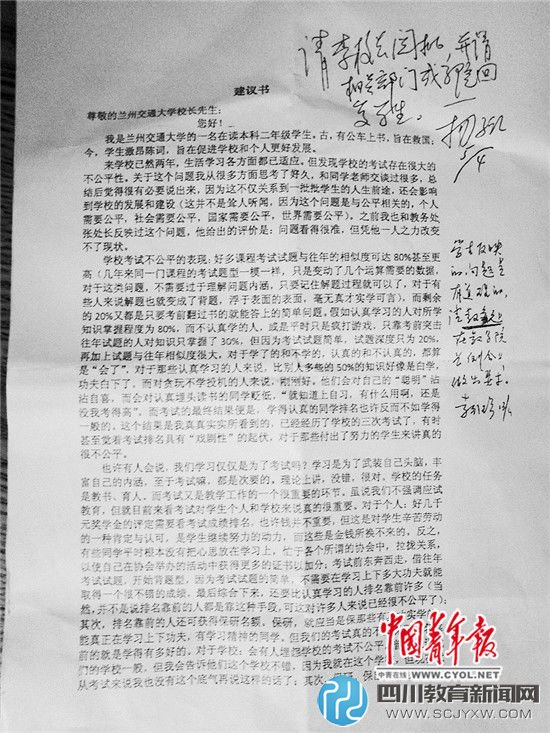 请李校长阅批,并请
相关部门或
复学生。
5/4
学生反映
的问题是
有道理的,
请教务处
建议书
尊敬的兰州交通大学校长先生:
您好!
我是兰州交通大学的一名在读本科二年级学生。古,有公车上书,旨在救国;
今,学生激昂陈词,旨在促进学校和个人更好发展。
来学校已然两年,生活学习各方面都已适应。但发现学校的考试存在很大的
不公平性。关于这个问题我从很多方面思考了好久,和同学老师交谈过很多,总
结后觉得很有必要说出来,因为这不仅关系到一批批学生的人生前途,还会影响
到学校的发展和建设(这并不是耸人听闻,因为这个问题是与公平相关的,个人
需要公平,社会需要公平,国家需要公平,世界需要公平)。之前我也和教务处
张处长反映过这个问题,他给出的评价是:问题看得很准,但凭他一人之力改变
不了现状。
学校考试不公平的表现:好多课程考试试题与往年的相似度可达 80%甚至更
高(几年来同一门课程的考试题型一模一样,只是变动了几个运算需要的数据,
对于这类问题,不需要过于理解问题内涵,只要记住解题过程就可以了,对于有
些人来说解题也就变成了背题,浮于表面的表面,毫无真才实学可言),而剩余
的 20%又都是只要考前翻过书的就能答上的简单问题。假如认真学习的人对所学
知识掌握程度为 80%,而不认真学的人,或是平时只是疯打游戏,只靠考前突击
往年试题的人对知识只掌握了 30%,但因为考试试题简单,试题深度只为 20%,
再加上试题与往年相似度很大。对于学了的和不学的,认真的和不认真的,都算
是“会了”,对于那些认真学习的人来说,比别人多些的 50%的知识好像是白学,
功夫白下了。而对贪玩不学投机的人来说,刚刚好。他们会对自己的“聪明”沾
沾自喜,而会对认真埋头读书的同学贬低,“就知道上自习,有什么用啊,还是
没我考得高”。而考试的最终结果便是,学得认真的同学排名也许反而不如学得
一般的。这个结果是我真真实实所看到的,已经经历了学校的三次考试了,有时
甚至觉着考试排名具有“戏剧性”的起伏,对于那些付出了努力的学生来讲真的
很不公平。
也许有人会说,我们学习仅仅是为了考试吗?学习是为了武装自己头脑,丰
富自己的内涵,至于考试嘛,都是次要的。理论上讲,没错,很对。学校的任务
是教书、育人。而考试又是教学工作的一个很重要的环节。虽说我们不强调应试
教育,但就目前来看考试对学生个人和学校来说真的很重要。对于个人:好几千
元奖学金的评定需要看考试成绩排名,也许钱并不重要,但这是对学生辛苦劳动
的一种肯定与认可,是学生继续努力的动力,而这些是金钱所换不来的。反之,
有些同学平时根本没有把心思放在学习上,忙于各个所谓的协会中,拉拢关系,
以使自己在协会举办的活动中获得更多的证书以加分;考试前东奔西走,借往年
考试试题,开始背题型,因为考试试题的简单,不需要在学习上下多大功夫就能
取得一个很不错的成绩,最后综合下来,还要比认真学习的人排名靠前许多(当
然,并不是说排名靠前的人都是靠这种手段,可这对许多人来说已经很不公平了);
其次,排名靠前的人还可获得保研名额。保研,就应当是保那些有真实学
能真正在学习上下功夫,有学习精神的同学。但我们的考试真的不
前的就是学得有多好的。对于学校:会有人埋怨学校的考试不公平
们的学校一般,但我会告诉他们这个学校不错,因为我就在这个学
从考试来说我也没有这个底气再说这样的话了;其次,保研,保
中国青年报
中青在线 WWW.CYOL.NET
四川教育新闻网
WWW.SCJYXW.COM